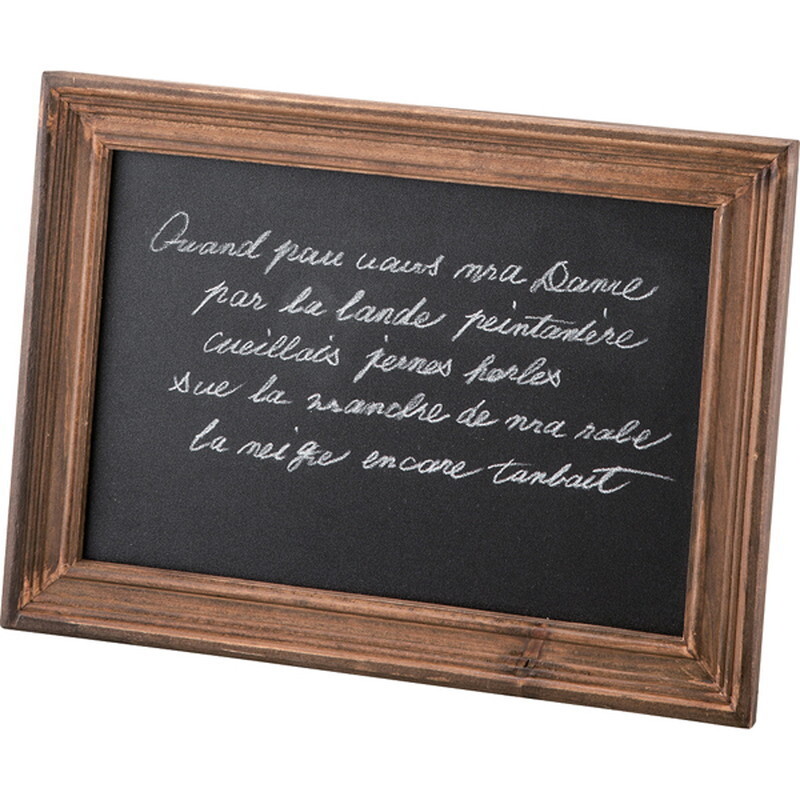 Quand pau vaws nra Danre
par la lande peintanière
cueillais jernes horles
sue la manche de nra rabe
la neige encare tanbait